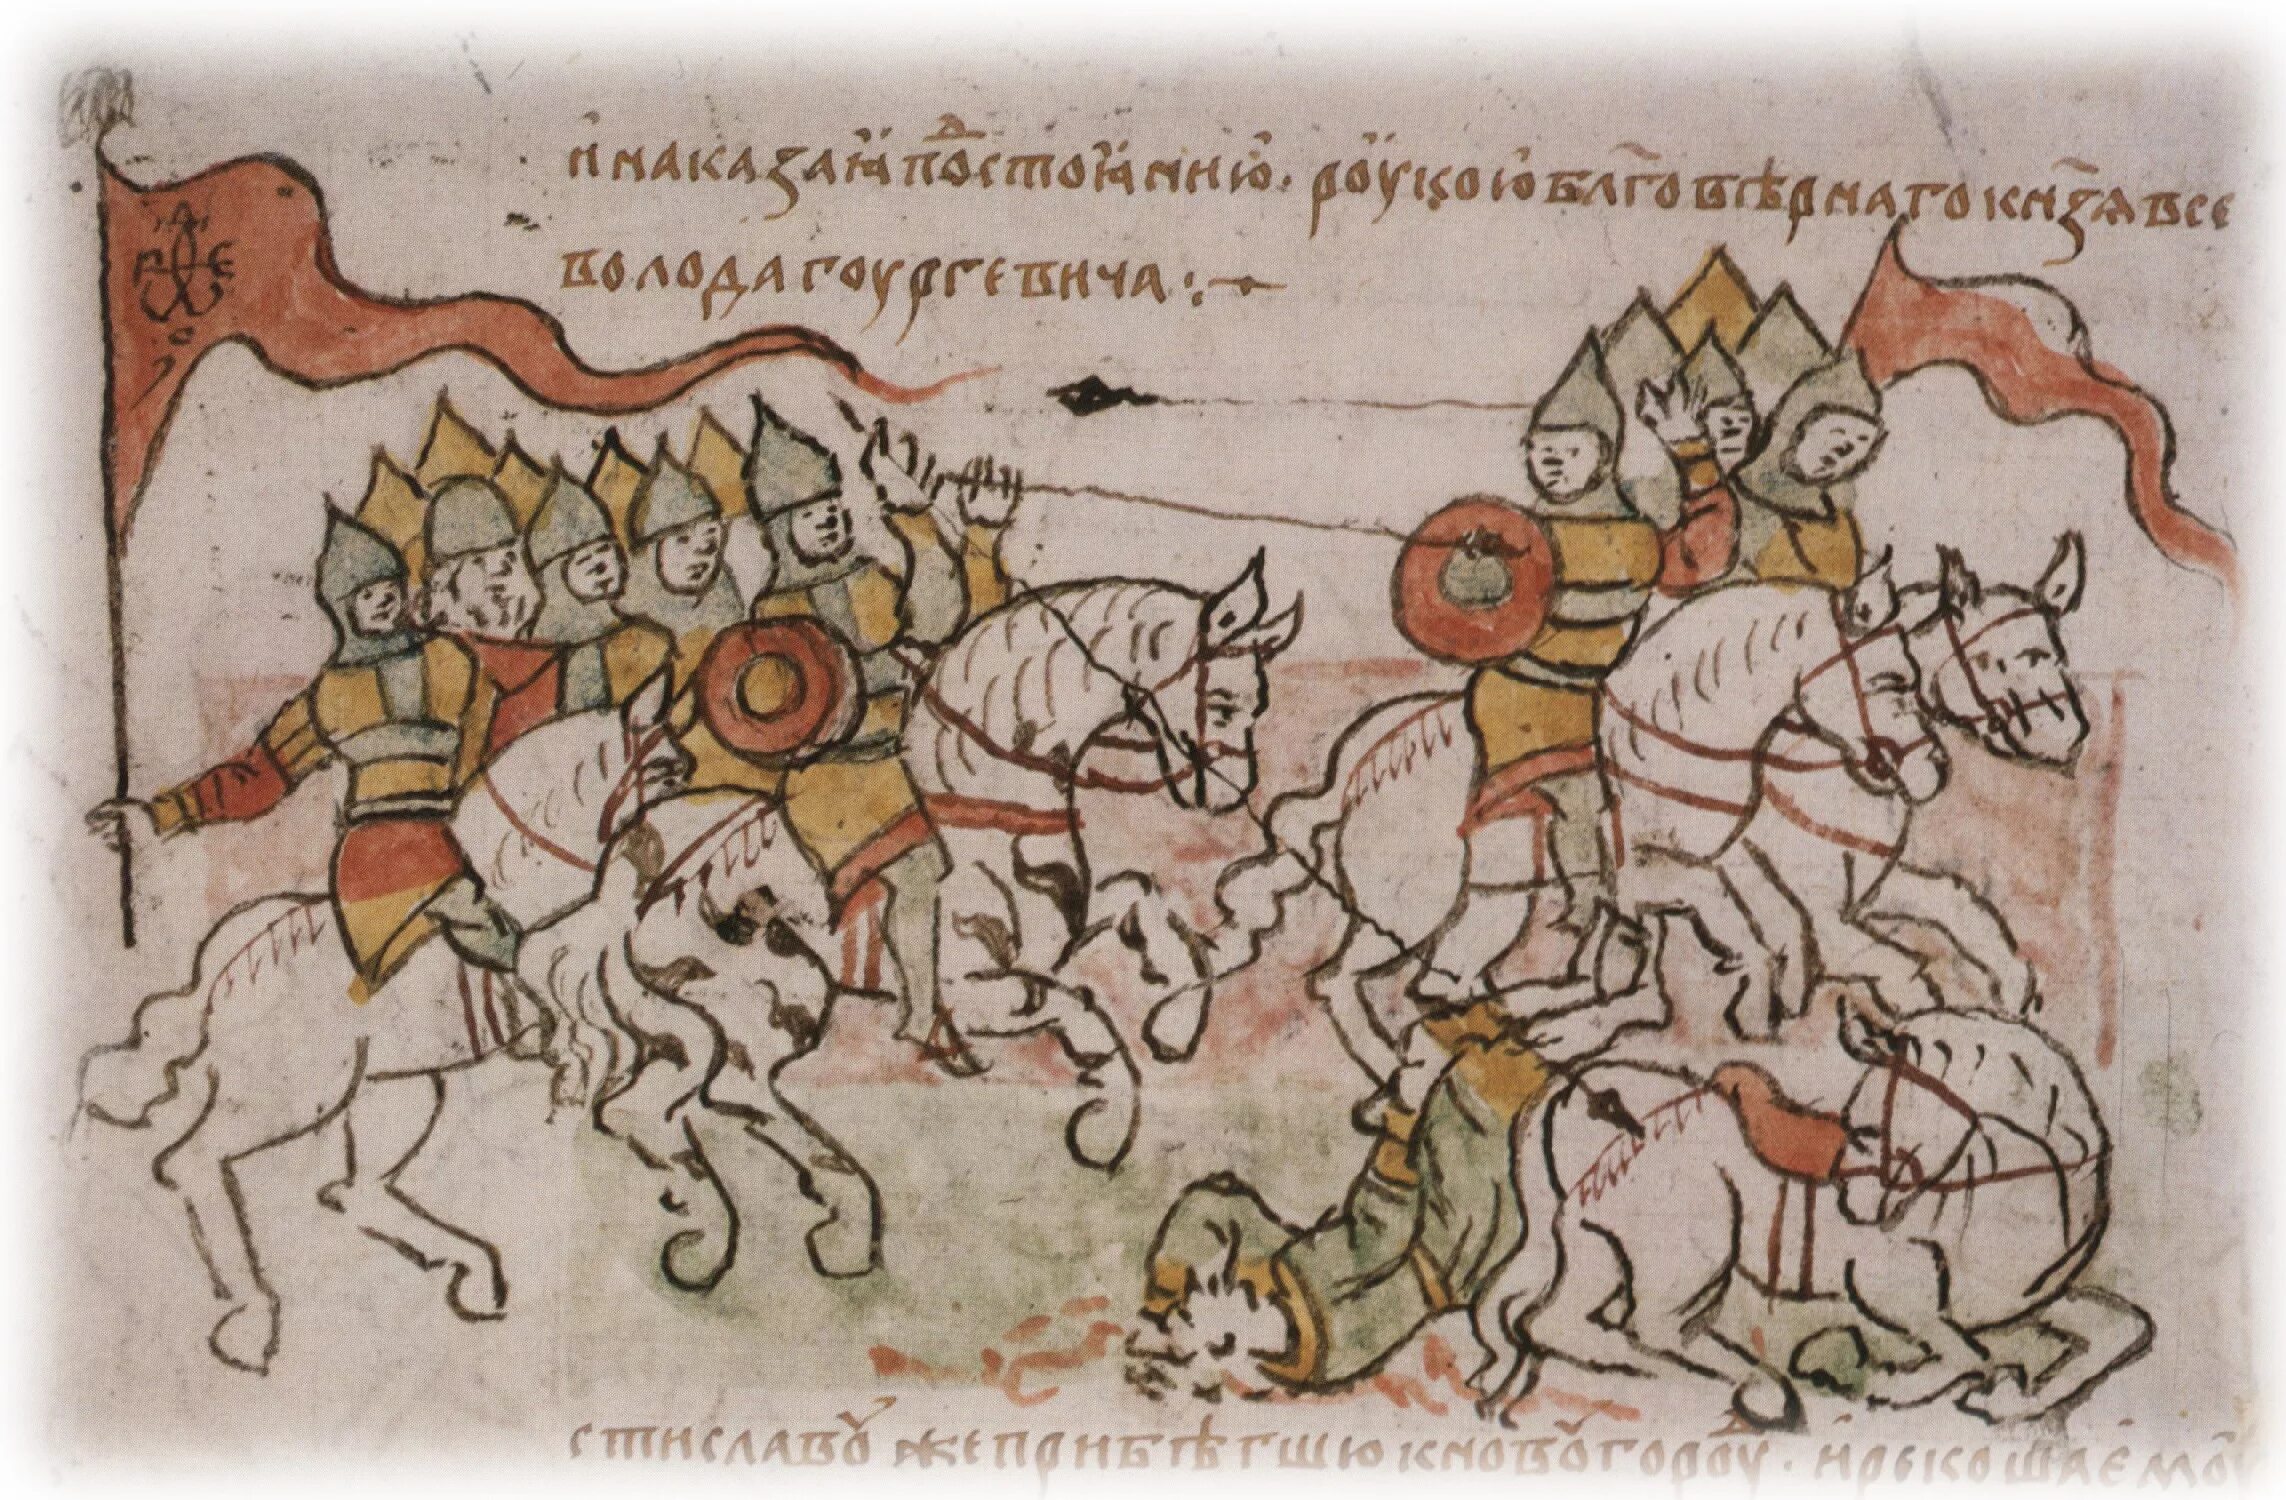 и наказаꙗ подостоꙗнию. роукою блговѣрнаго кнѧзѧ все
волода гоургевича :~
стиславоу же прибѣгшю к новоугородоу. и рекоша емоу